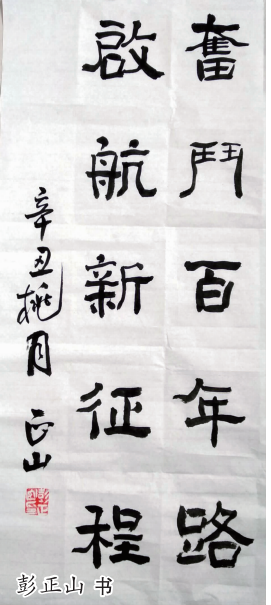 奮鬥百年路
啟航新征程
辛丑桃月 正山
彭正山 书